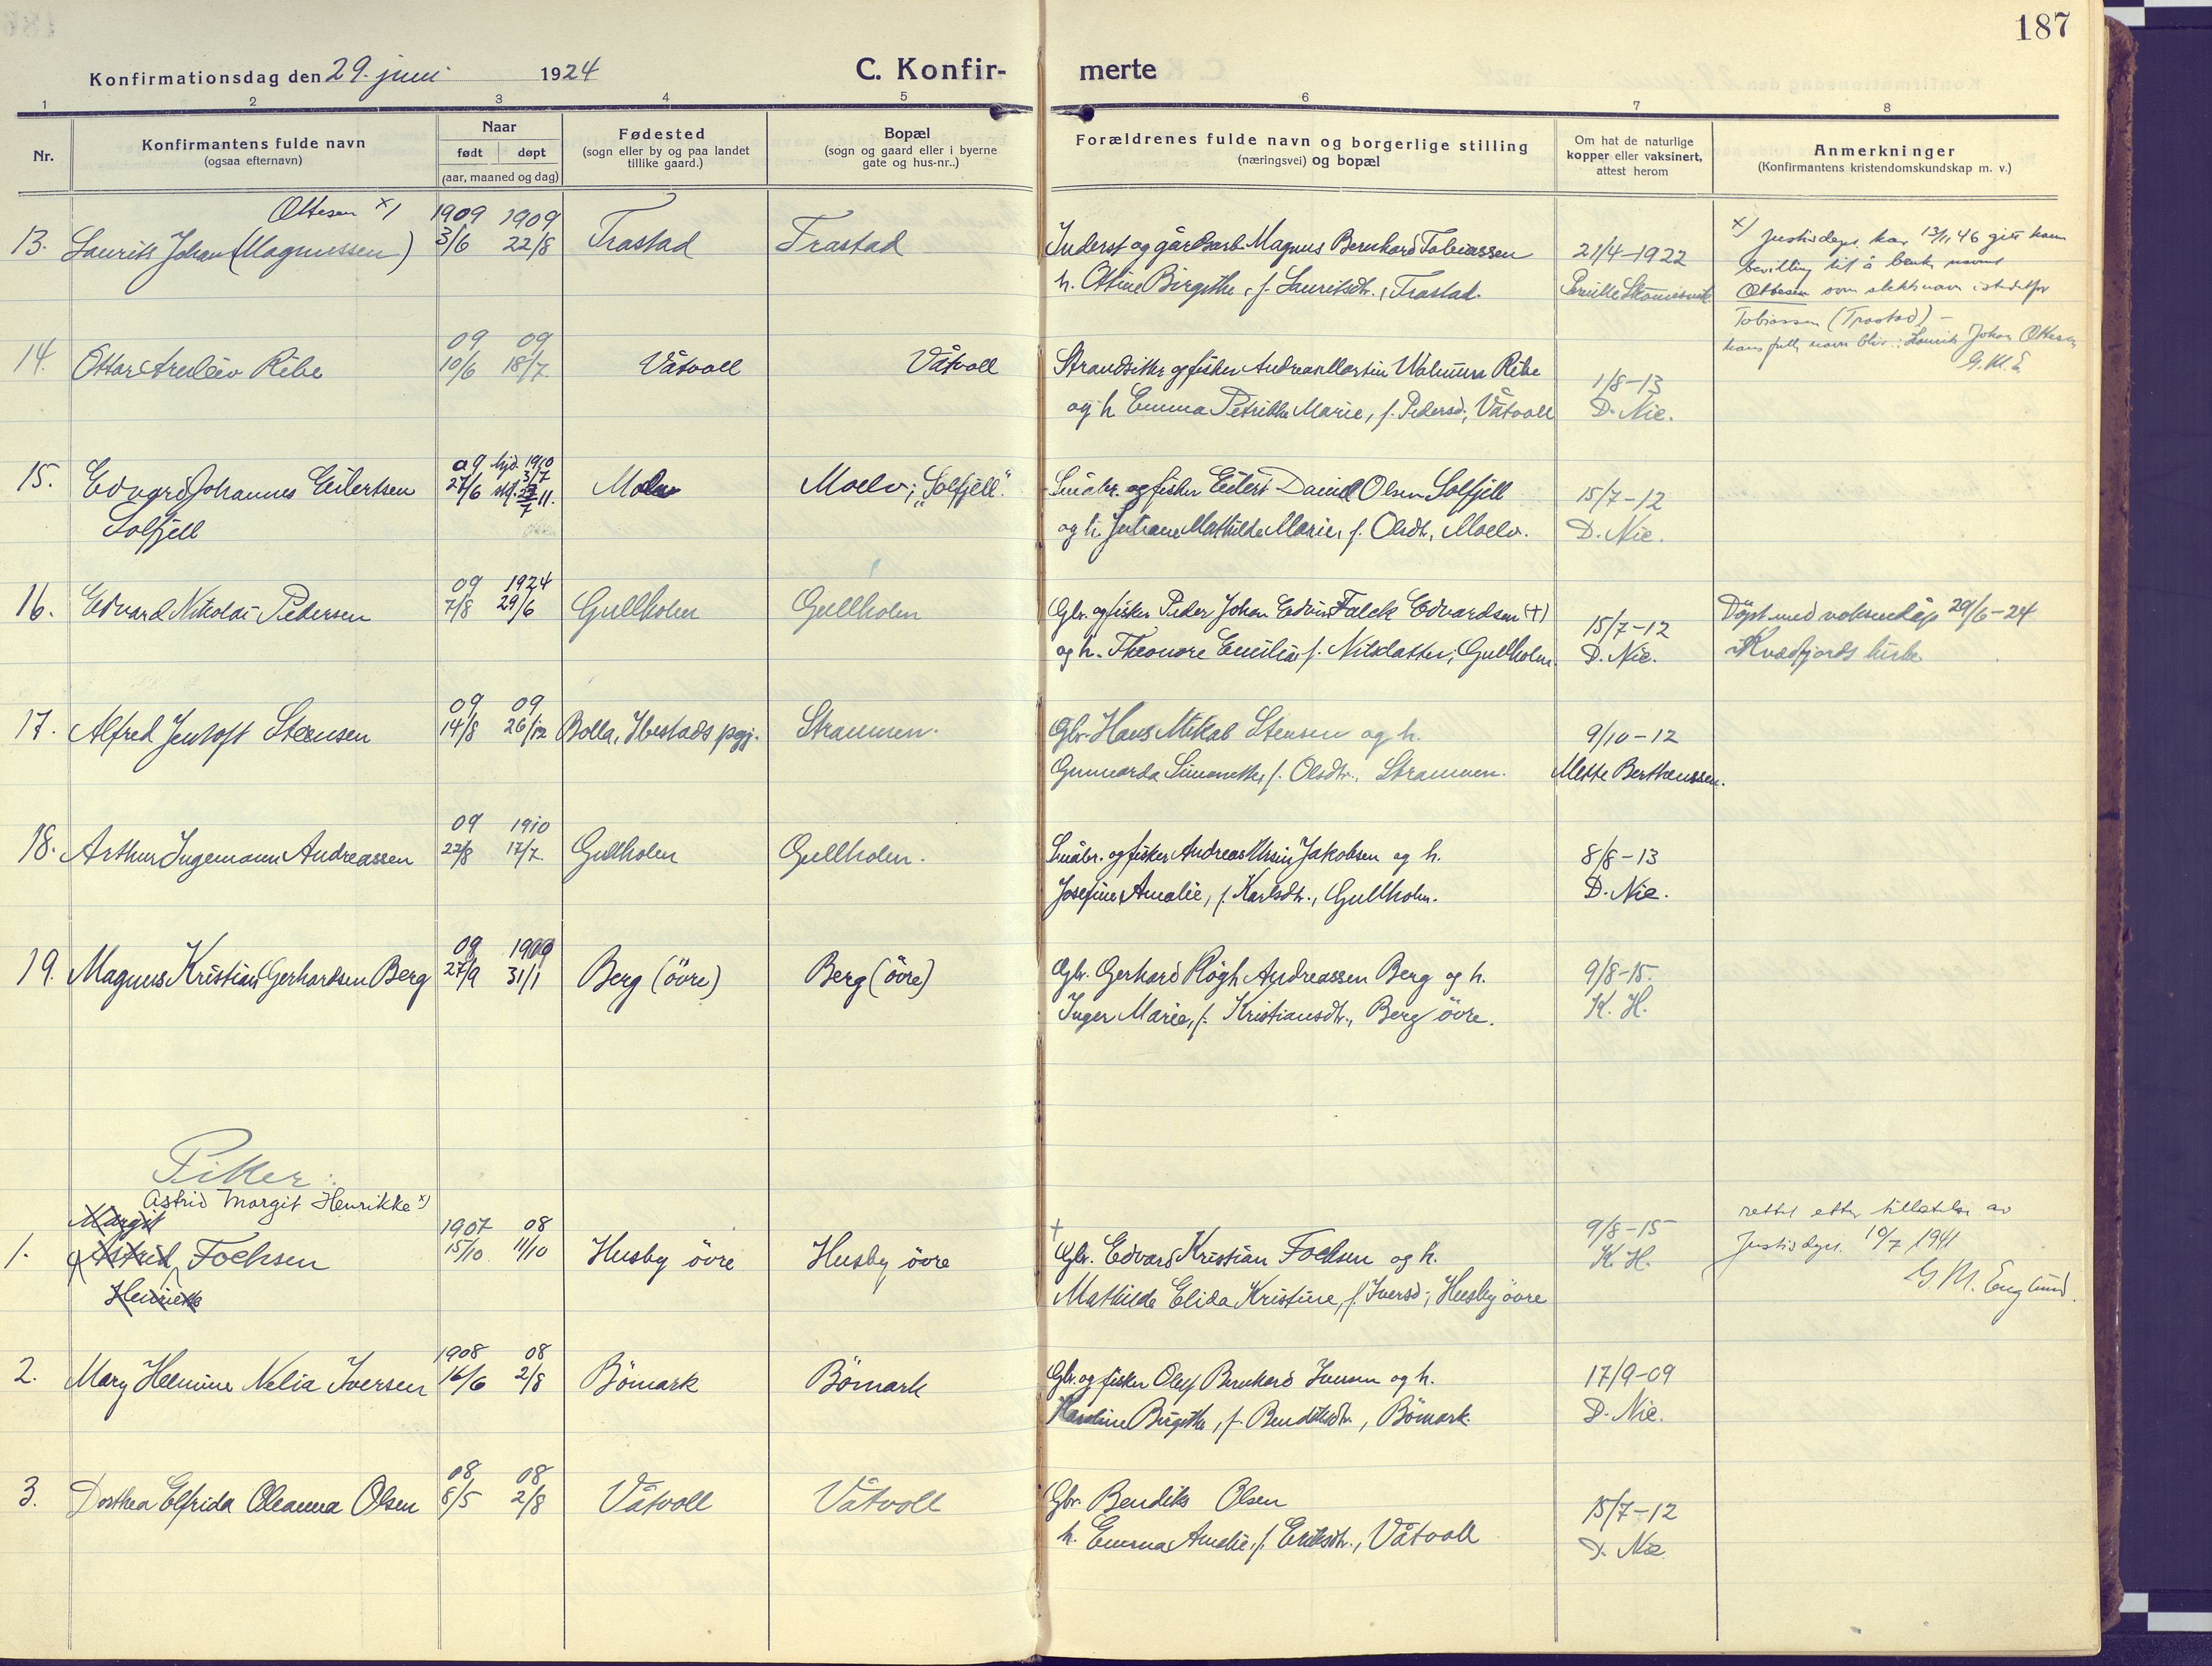 187
Konfirmationsdag den 29. juni 1924
C. Konfir- merte
1 2 3 4 5 6 7 8
Nr.
Konfirmantens fulde navn
(ogsaa efternavn)
Naar
født døpt
(aar, maaned og dag)
Fødested
(sogn eller by og paa landet
tillike gaard.)
Bopæl
(sogn og gaard eller i byerne
gate og hus-nr..)
Forældrenes fulde navn og borgerlige stilling
(næringsvei) og bopæl
Om hat de naturlige
kopper eller vaksinert,
attest herom
Anmerkninger
(Konfirmantens kristendomskundskap m. v.)
Ottesen x) 1909 1909
13. Laurits Johan (Magnussen) 3/6 22/8 Trastad Trastad Inderst og gårdsarb. Magnus Bernhard Tobiassen 21/4-1922
h. Ottine Birgithe, f. Lauritsdtr., Trastad.
x) Justisdept. har 13/11 46 gitt ham
bevilling til å bruke navnet
Ottesen som slektsnavn istedetfor
Tobiassen (Trastad) -
hans fulle navn blir: Laurits Johan Ottesen
G.M.E
09 09
14. Ottar Areleiv Ribe 10/6 18/7 Våtvoll Våtvoll Strandsitter og fisker Andreas Martin Ribe 1/8-13
og h. Emma Petrikke Marie, f. Pedersd., Våtvoll D. Nic.
09 hjd. 1910
3/7
15. Edvard Johannes Eilertsen 27/6 stf. 11. Moelv Moelv; "Solfjell". Småbr. og fisker Eilert Daniel Olsen Solfjell 15/7-12
Solfjell og h. Mathilde Marie, f. Olsdtr., Moelv. D. Nic.
09 1924
16. Edvard Nikolai Pedersen 7/8 29/6 Gullholm Gullholm Gbr. og fisker Peder Johan Edvin Falck Edvardsen (†) 15/7-12 Döpt med voksendåp 29/6-24
og h. Theonore Emilie, f. Nilsdatter, Gullholm. D. Nic. i Kvæfjords kirke
09 09
17. Alfred Jentoft Steensen 14/8 26/12 Bolla, Ibestads pgj. Straumen. Gbr. Hans Mikal Stensen og h. 9/10-12
Gunnarda Simonette, f. Olsdtr., Straumen. Mette Bertheussen.
09 1910
18. Arthur Ingemann Andreassen 22/8 17/7 Gullholm Gullholm. Småbr. og fisker Andreas Ursin Jakobsen og h. 8/8-13
Josefine Amalie, f. Karlsdtr., Gullholm. D. Nic.
09 1909
19. Magnus Kristian Gerhardsen Berg 27/9 31/1 Berg (övre) Berg (övre) Gbr. Gerhard Högh Andreassen Berg og h. 9/8-15.
Inger Marie, f. Kristiansdtr., Berg övre. K. H.
Piker:
Astrid Margit Henrikke x)
Margit 1907 08
1. Astrid Fochsen 15/10 11/10 Husby övre Husby övre † Gbr. Edvard Kristian Fochsen og h. 9/8-15 K. H.
Henrikke Mathilde Elida Kristine, f. Iversd., Husby övre
rettet etter tillatelse av
Justisdept. 10/7 1941
G. M. Englund.
1908 08
2. Mary Helmine Nelia Iversen 16/6 2/8 Bömark Bömark Gbr. og fisker Olaf Bernhard Iversen og h. 17/9-09
Karoline Birgithe, f. Bendiksdtr., Bömark. D. Nic.
08 08
3. Dorthea Elfrida Oleanna Olsen 8/5 2/8 Våtvoll Våtvoll Gbr. Bendiks Olsen 15/7-12
h. Emma Amalie, f. Eriksdtr., Våtvoll D. Nic.